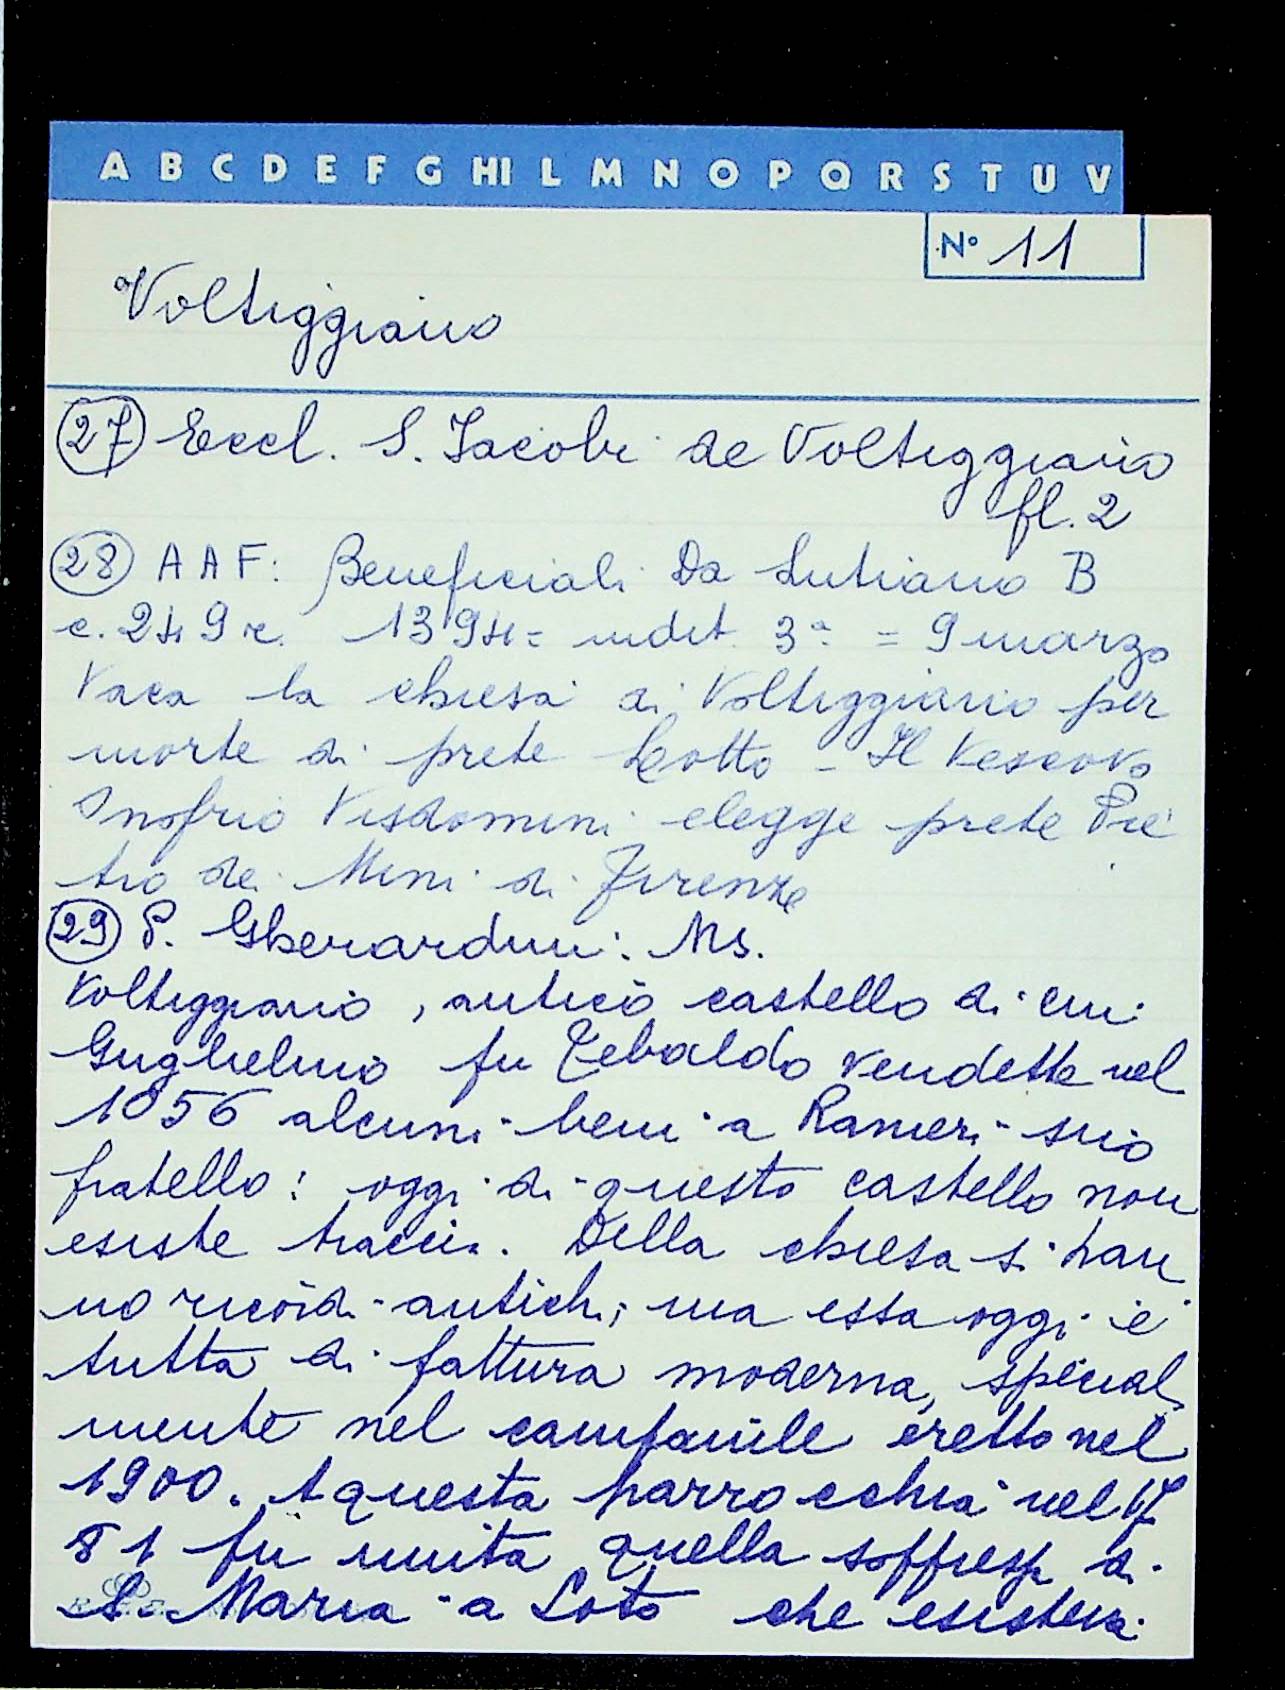 A B C D E F G HI L M N O P Q R S T U V
N° 11
Voltiggiano
27 Eccl. S. Iacobi de Voltiggiano
fl. 2
28 A A F: Beneficiali Da Lutiano B
c. 249 r. 1394 = indit. 3a = 9 marzo
Vaca la chiesa di Voltiggiano per
morte di prete Lotto - Il Vescovo
Inofrio Visdomini elegge prete Pie
tro dei Mini di Firenze
29 P. Gherardini: Ms.
Voltiggiano, antico castello di cui
Guglielmo fu Tebaldo vendette nel
1056 alcuni beni a Ranieri suo
fratello: oggi di questo castello non
esiste traccia. Della chiesa si han
no ricordi antichi; ma essa oggi è
tutta di fattura moderna, special
mente nel campanile eretto nel
1900. A questa parrocchia nel 17
81 fu unita quella soppressa di
S. Maria a Soto che esisteva